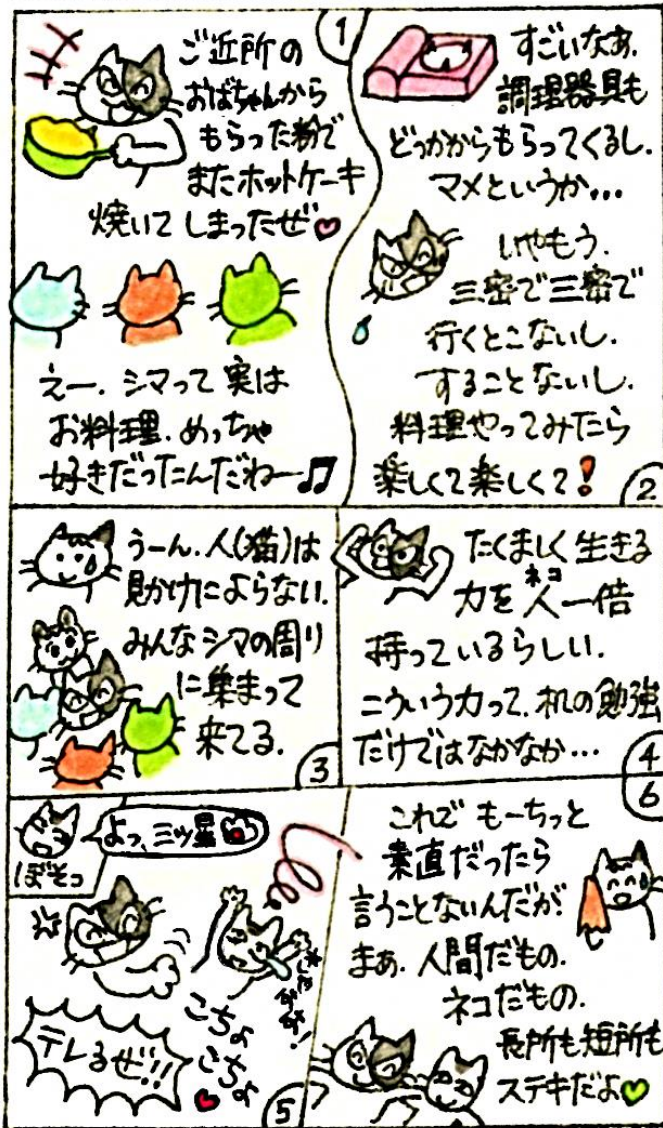 1
ご近所の
おばちゃんから
もらった粉で
またホットケーキ
焼いてしまったぜ
えー.シマって実は
お料理.めっちゃ
好きだったんだねー♫
すごいなぁ.
調理器具も
どっかからもらってくるし.
マメというか…
いやもう.
三密で三密で
行くとこないし.
することないし.
料理やってみたら
楽しくて楽しくて!
2
うーん.人(猫)は
見かけによらない.
みんなシマの周り
に集まって
来てる.
3
たくましく生きる
力を人一倍
ネコ
持っているらしい.
こういう力って.机の勉強
だけではなかなか…
4
よっ、三ツ星
ぼそっ
こちょ
こちょ
テレるぜ!!
5
6
これで もーちっと
素直だったら
言うことないんだが
まぁ.人間だもの.
ネコだもの.
長所も短所も
ステキだよ